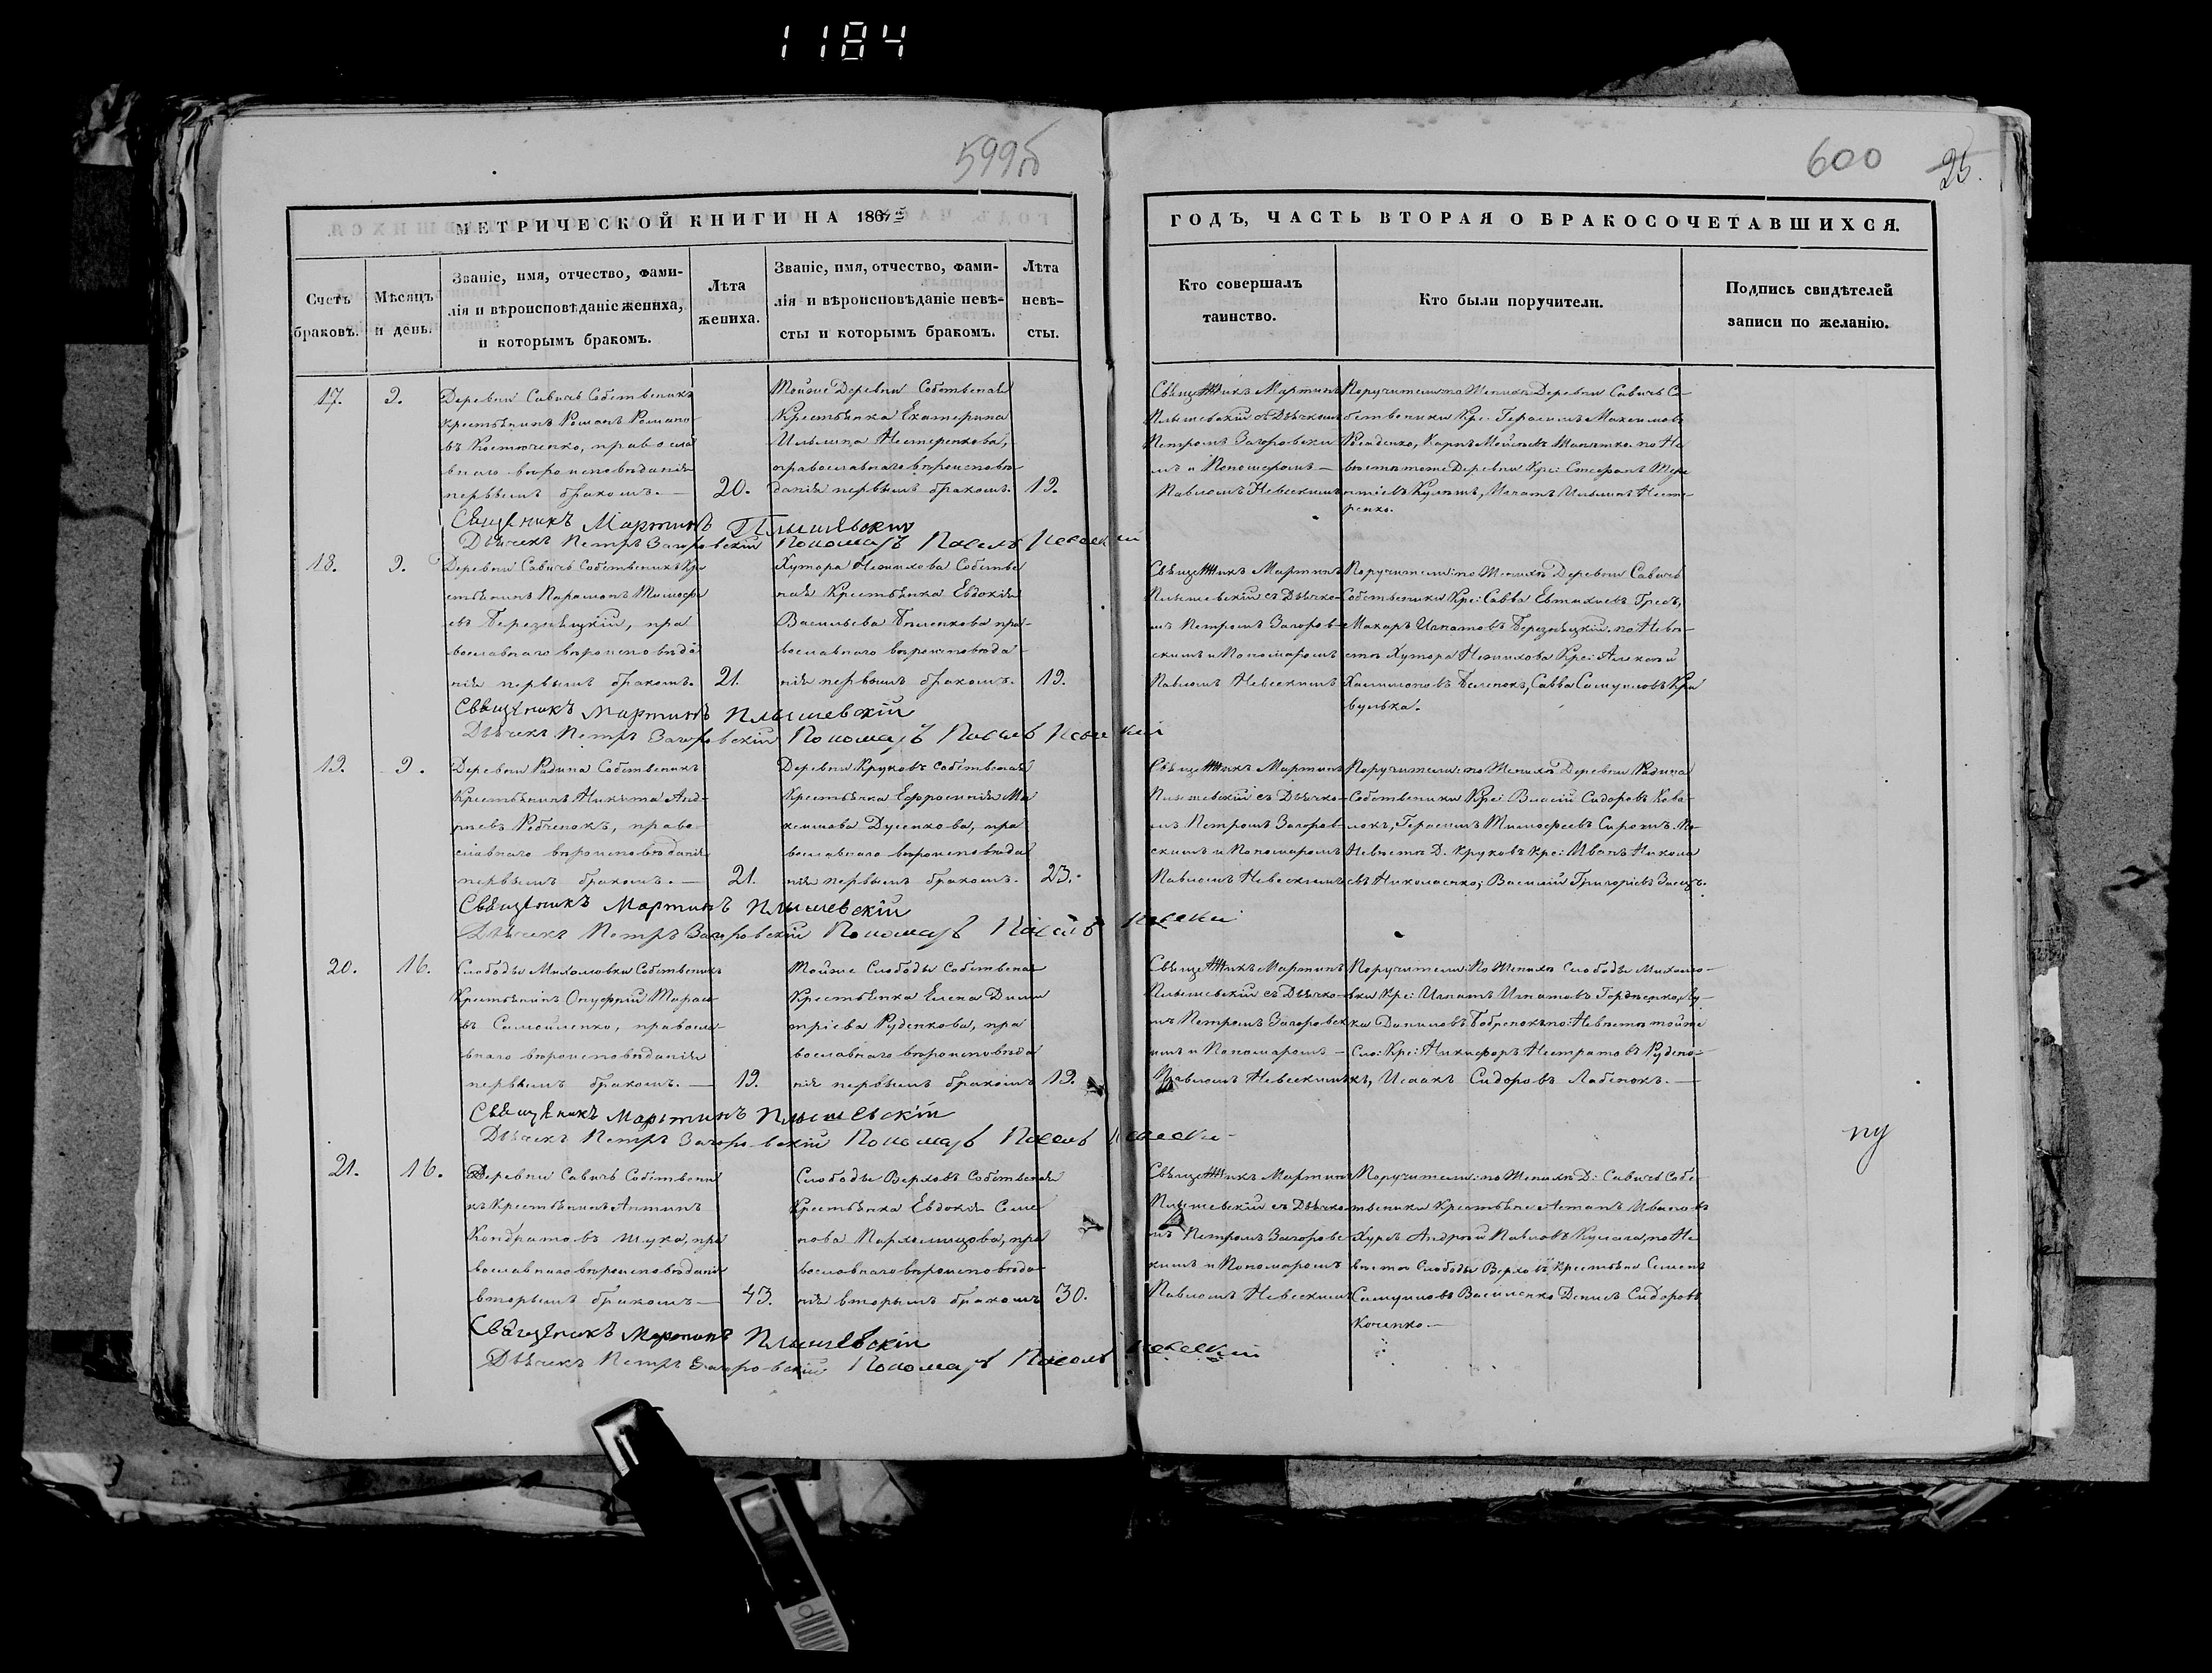 1184
599об
600
25.
МЕТРИЧЕСКОЙ КНИГИ НА 1867
ГОДЪ, ЧАСТЬ ВТОРАЯ О БРАКОСОЧЕТАВШИХСЯ.
Счетъ
браковъ.
Мѣсяцъ
и день.
Званіе, имя, отчество, фами-
лія и вѣроисповѣданіе жениха,
и которымъ бракомъ.
Лѣта
жениха.
Званіе, имя, отчество, фами-
лія и вѣроисповѣданіе невѣ-
сты и которымъ бракомъ.
Лѣта
невѣ-
сты.
Кто совершалъ
таинство.
Кто были поручители.
Подпись свидѣтелей
записи по желанію.
17.
9.
Деревни Савичъ Собственикъ
крестьянинъ Романъ Романо
въ Костюченко, правосла
внаго вѣроисповѣданія
первымъ бракомъ.—
20.
Тойже Деревни Собственая
Крестьянка Екатерина
Ильина Нестеренкова,
православнаго вѣроисповѣ
данія первымъ бракомъ.
19.
Мартинъ
Плышевскій съ Дьячкомъ
Петромъ Загоровски
мъ и Пономаромъ —
Павломъ Невескимъ
Поручители: по Женихѣ Деревни Савичъ Со
бственики Кре: Герасимъ Максимовъ
Карпъ по Не
вѣстѣ тоже Деревни Кре: Стефанъ Тере
нтіевъ Ильинъ Несте
ренко.
Мартинъ Плышевскій
Дьячекъ Петръ Загоровскій Пономарь Павелъ Невескій
18.
9.
Деревни Савичъ Собственикъ Кре
стьянинъ Парамонъ Тимофе
евъ Березнъцкій, пра
вославнаго вѣроисповѣда
нія первымъ бракомъ.
21.
Хутора Собстве
ная Крестьянка Евдокія
Васильева Беленкова пра-
вославнаго вѣроисповѣда
нія первымъ бракомъ.
19.
Мартинъ
Плышевскій съ Дьячко-
мъ Петромъ Загоров-
скимъ и Пономаромъ
Павломъ Невескимъ
Поручители: по Женихѣ Деревни Савичъ
Собственики Кре: Савва Евтихіевъ
Макаръ Игнатовъ Березнъцкій. по Невѣ
стѣ Хутора Кре: Алексѣй
Беленокъ, Савва Самуиловъ Кри
вулька.
Мартинъ Плышевскій
Дьячекъ Петръ Загоровскій Пономарь Павелъ Невескій
19.
9.
Деревни Радина Собственикъ
Крестьянинъ Никита Анд-
реевъ право-
славнаго вѣроисповѣданія
первымъ бракомъ.—
21.
Деревни Круковъ собственая
Крестьянка Ефросинія Ма
ксимова Дусенкова, пра
вославнаго вѣроисповѣда
нія первымъ бракомъ.
23.
Мартинъ
Плышевскій съ Дьячко-
мъ Петромъ Загоров-
скимъ и Пономаромъ
Павломъ Невескимъ
Поручители: по Женихѣ Деревни Радина
Собственики Кре: Власій Сидоровъ Кова
Герасимъ Тимофеевъ По
Невѣстѣ Д. Круковъ Кре: Иванъ Никола
евъ Николаенко; Василій Григоріевъ Заецъ.
Мартинъ Плышевскій
Дьячекъ Петръ Загоровскій Пономарь Павелъ
20.
16.
Слободы Михаловки Собственикъ
Крестьянинъ Онуфрій Тарасо
въ Самойленко, правосла-
внаго вѣроисповѣданія
первымъ бракомъ.—
19.
Тойже Слободы Собственая
Крестьянка Елена Дими
тріева Руденкова, пра
вославнаго вѣроисповѣда
нія первымъ бракомъ
19.
Мартинъ
Плышевскій съ Дьячко-
мъ Петромъ Загоровск
имъ и Пономаромъ —
Павломъ Невескимъ
Поручители: по Женихѣ Слободы Михало-
вки Кре: Игнатъ Игнатовъ Лу
ка Даниловъ Бобренокъ по: Невѣстѣ тойже
Сло: Кре: Никифоръ Руденo-
къ, Исаакъ Сидоровъ Лабенокъ.—
Мартинъ Плышевскій
Дьячекъ Петръ Загоровскій Пономарь Павелъ
21.
16.
Деревни Савичъ Собствени
къ Крестьянинъ Антипъ
Кондратовъ Шука, пра
вославнаго вѣроисповѣданія
вторымъ бракомъ—
43.
Слободы Верховъ Собственая
Крестьянка Евдокія Семе
нова Пархоменкова, пра
вославнаго вѣроисповѣда
нія вторымъ бракомъ
30.
Мартинъ
Плышевскій съ Дьячко
мъ Петромъ Загоровс
кимъ и Пономаромъ
Павломъ Невескимъ
Поручители: по Женихѣ Д: Савичъ Собс
твеники Крестьяне Ивановъ
Андрѣй Павловъ по Не
вѣсте Слободы Верховъ Крестьяне Семенъ
Самуиловъ Василенко Денисъ Сидоровъ
Мартинъ Плышевскій
Дьячекъ Петръ Загоровскій Пономарь Павелъ Невескій